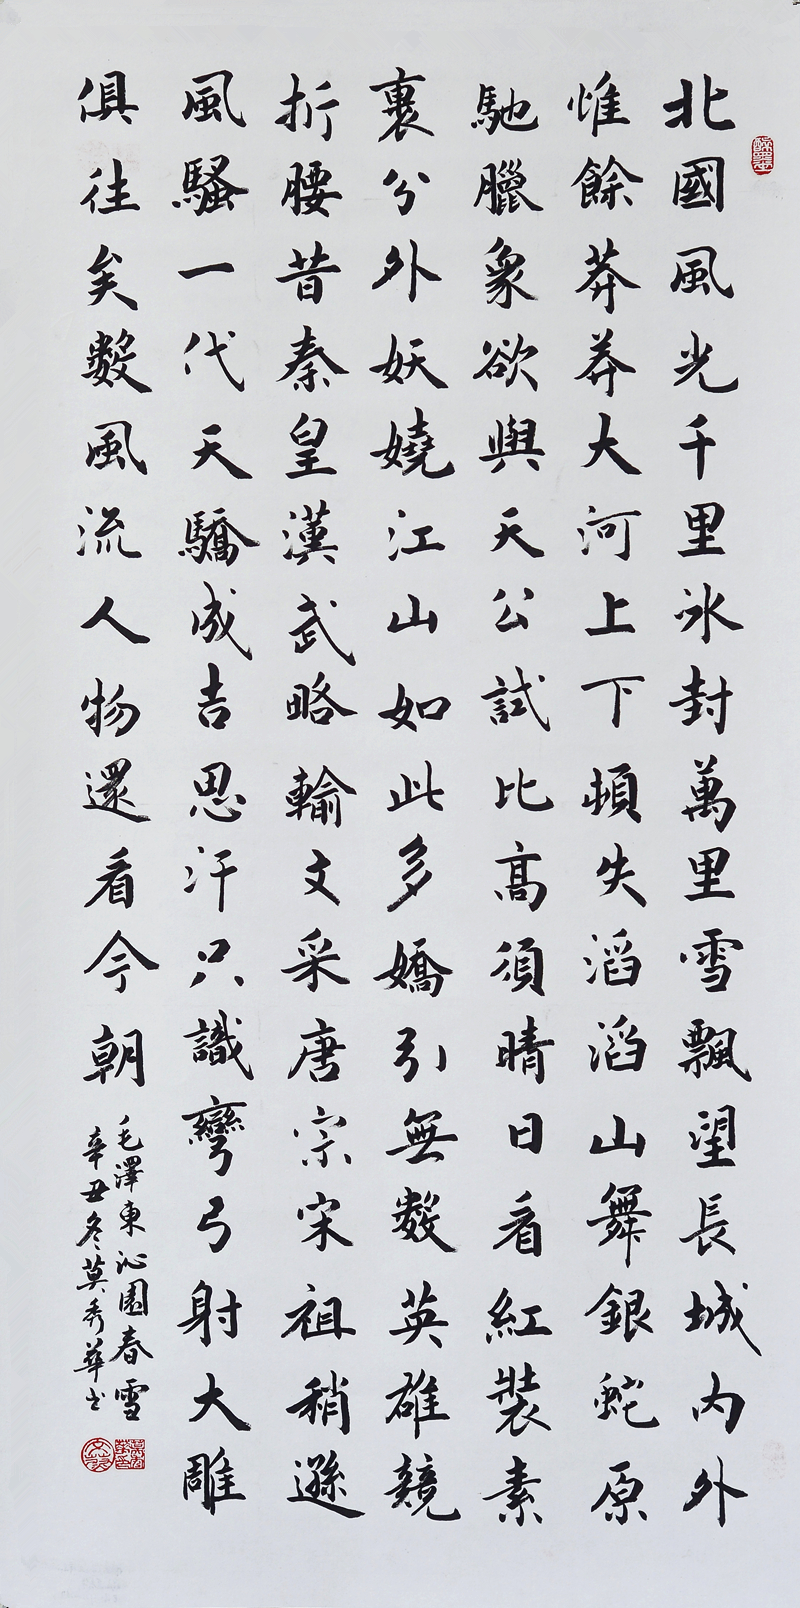 北國風光千里冰封萬里雪飄望長城內外
惟餘莽莽大河上下頓失滔滔山舞銀蛇原
馳臘象欲與天公試比高須晴日看紅裝素
裹分外妖嬈江山如此多嬌引無數英雄競
折腰昔秦皇漢武略輸文采唐宗宋祖稍遜
風騷一代天驕成吉思汗只識彎弓射大雕
俱往矣數風流人物還看今朝
毛澤東沁園春雪
辛丑冬莫秀華书